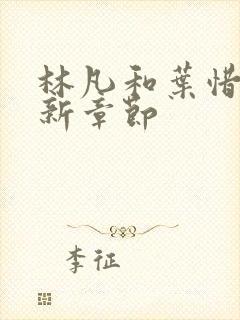 林凡和葉惜
新章節
李征